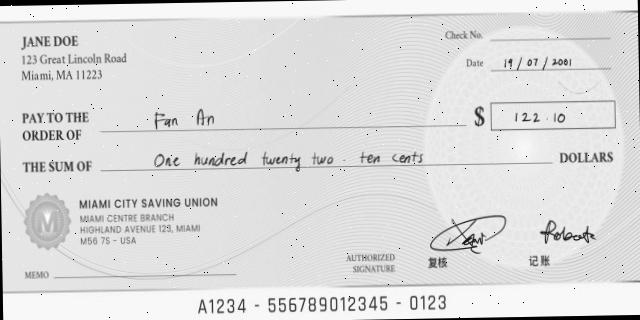 JANE DOE
123 Great Lincoln Road
Miami, MA 11223
Check No.
Date 19/07/2001
PAY TO THE
ORDER OF Fan An
$ 122.10
THE SUM OF One hundred twenty two. ten cents DOLLARS
MIAMI CITY SAVING UNION
MIAMI CENTRE BRANCH
HIGHLAND AVENUE 129, MIAMI
M56 7S - USA
M
AUTHORIZED
SIGNATURE
复核
记账
MEMO
A1234 - 556789012345 - 0123